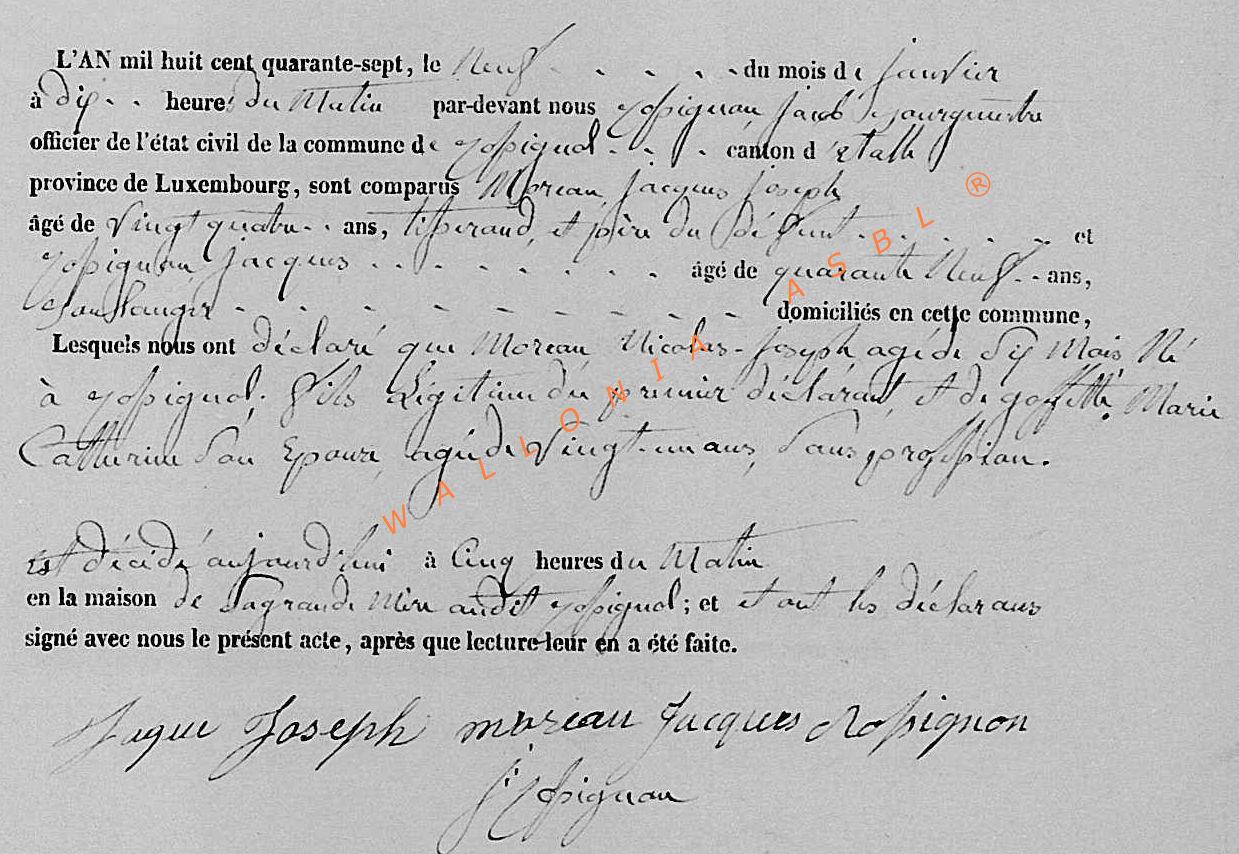 L'AN mil huit cent quarante-sept, le Neuf . . . . . du mois de janvier
à dix . . heures du Matin par-devant nous Rossignon, Jacob Bourgmestre
officier de l'état civil de la commune de Rossignol . . . canton d'Etalle
province de Luxembourg, sont comparus Moreau, Jacques Joseph
âgé de Vingt quatre . . ans, tisserand, et père du défunt . . . . . . et
Rossignon Jacques . . . . . . . . âgé de quarante Neuf . . ans,
Boulanger - - - - - - - - - domiciliés en cette commune,
Lesquels nous ont déclaré que Moreau Nicolas-Joseph agé de Six Mois Né
à Rossignol, fils Légitime du premier déclarant, et de Marie
Catherine Son Epouse, agée de Vingt-un ans, Sans profession.
est décédé aujourd'hui à Cinq heures du Matin
en la maison de Sa grande Mère audit Rossignol; et et ont les déclarans
signé avec nous le présent acte, après que lecture leur en a été faite.
Jaque Joseph moreau Jacques Rossignon
J Rossignon
WALLONIA ASBL ®